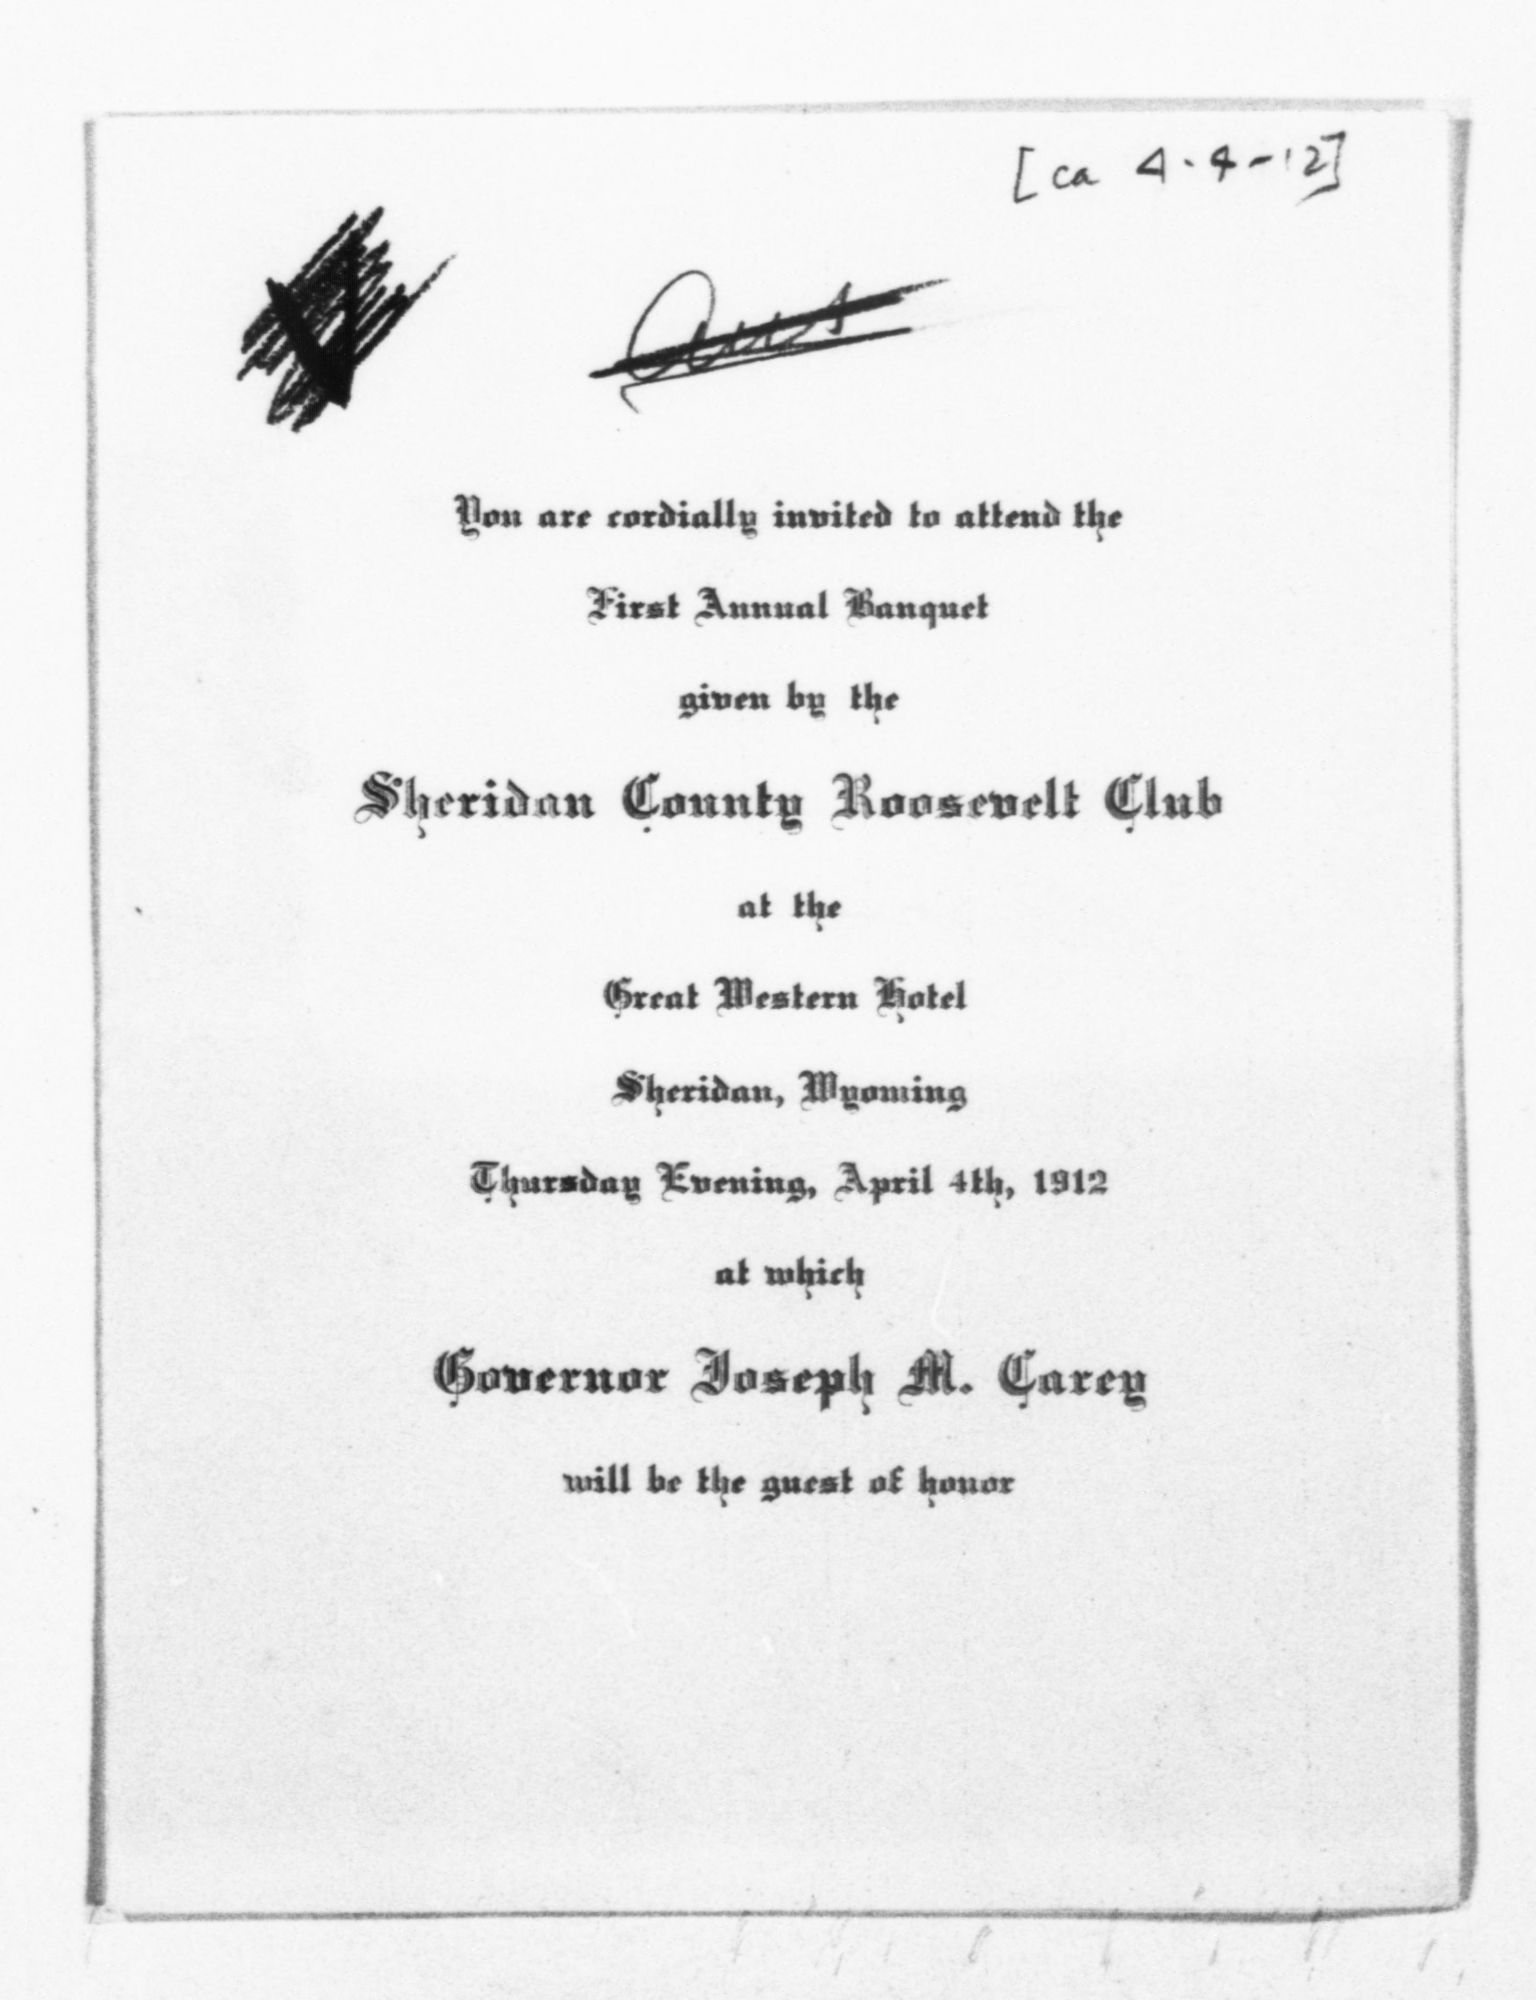 [ca 4-4-12]
You are cordially invited to attend the
First Annual Banquet
given by the
Sheridan County Roosevelt Club
at the
Great Western Hotel
Sheridan, Wyoming
Thursday Evening, April 4th, 1912
at which
Governor Joseph M. Carey
will be the guest of honor